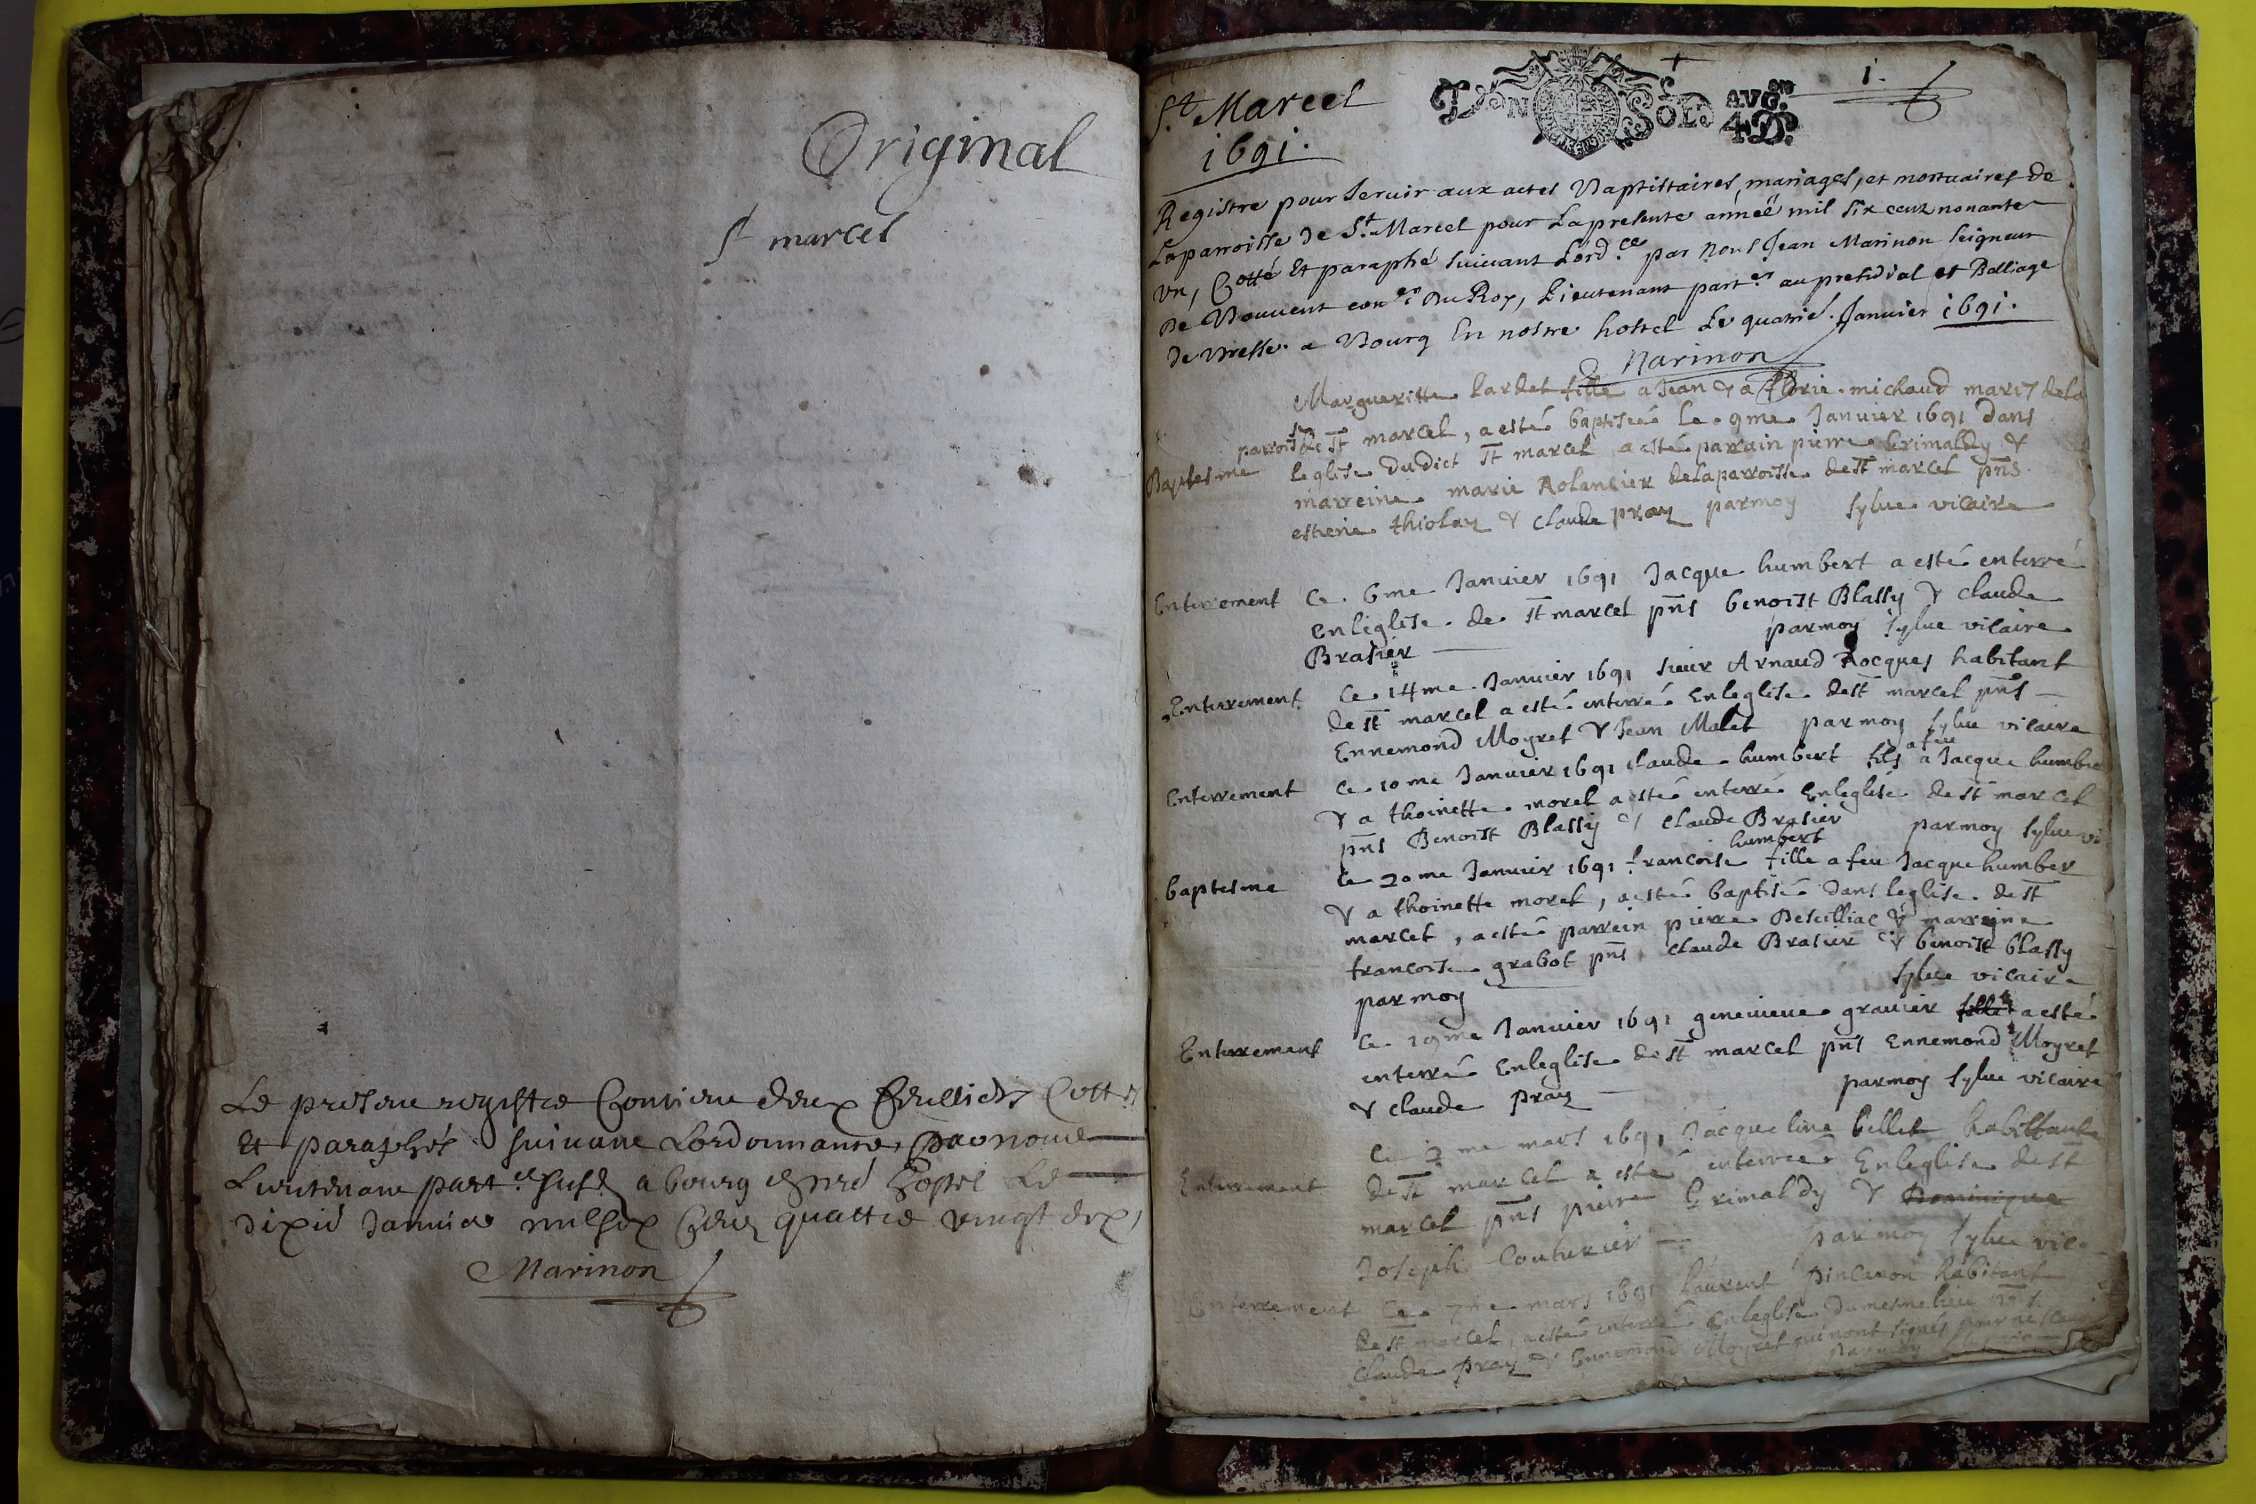 Original
St marcel
Le presant registre Contient deux feuillets Cottés
Et paraphés suivant Lordonnance, par nous
Lieutenant part.er susd. a bourg En nre hostel Le
dixie Janvier mil six Cens quattre vingt dix,
Marinon
St Marcel
1691.
GEN DE SOLS
AVG.on
4 D.
1.
Registre pour servir aux actes Baptistaires, mariages, et mortuaires de
La parroisse de St Marcel pour La presente année mil six cent nonante
un, Cotté Et paraphé suivant Lord.ce par nous Jean Marinon seigneur
De Bouvent con.er Du Roy, Lieutenant part.er au presidial et Balliage
de Bresse a Bourg En nostre hostel Le quatrie. Janvier 1691.
Marinon
Margueritte Lardet fille a Jean & a Florie michaud mariés de la
parroisse de St marcel, a esté baptisée le 9me Janvier 1691 dans
Baptesme
leglise dudict St marcel a esté parrain pierre Grimaldy &
marreine marie Rolandier de la parroisse de St marcel pns
estiene thiolay & claude pray par moy sylve vicaire
Enterrement
Ce 6me Janvier 1691 Jacque humbert a esté enterré
en leglise de St marcel pns benoist Blassy & claude
Brasier par moy sylve vicaire
Enterrement
Ce 14me Janvier 1691 sieur Arnaud Rocques habitant
de St marcel a esté enterré En leglise de St marcel pns
Ennemond Moyret & Jean Malet par moy sylve vicaire
Enterrement
Ce 10me Janvier 1691 claude humbert fils a feu a Jacque humber
& a thoinette morel a esté enterré En leglise de St marcel
pns Benoist Blassy & claude Brasier par moy sylve vi
baptesme
Ce 20me Janvier 1691 francoise humbert fille a feu Jacque humber
& a thoinette morel, a esté baptisé dans leglise de St
marcel, a esté parrein pierre & marreine
francoise grabot pns claude Brasier & benoist blassy
par moy sylve vicaire
Enterrement
Ce 19me Janvier 1691 genevieve gravier fille a esté
enterré En leglise de St marcel pns Ennemond Moyret
& claude pray par moy sylve vicaire
Enterrement
Ce 2me mars 1691 Jacqueline billet habittante
de St marcel a esté enterreé En leglise de St
marcel pns pierre Grimaldy & Dominique
Joseph Couturier par moy sylve vic
Enterrement
Ce 7me mars 1691 Laurent pinceron habitant
de St marcel, a esté enterré En leglise du mesme lieu pns
claude pray & Ennemond Moyret qui nont signés pour ne scav
par moy